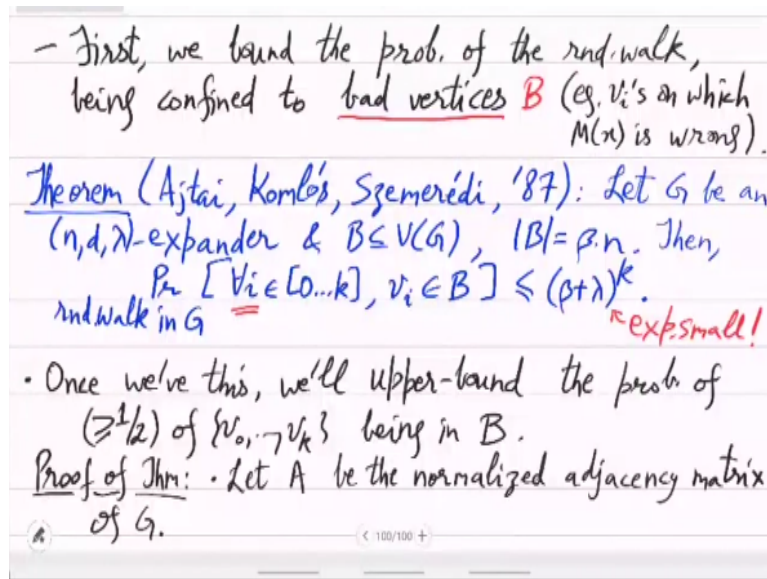 - First, we bound the prob. of the rnd.walk,
being confined to bad vertices B (eg. vᵢ's on which
M(x) is wrong).
Theorem (Ajtai, Komlós, Szemerédi, '87): Let G be an
(n,d,λ)-expander & B⊆V(G), |B|=β.n. Then,
Pr [∀i∈[0...k], vᵢ∈B] ≤ (β+λ)ᵏ.
rnd walk in G
↖exp.small!
• Once we've this, we'll upper-bound the prob. of
(≥1/2) of {v₀,..,vₖ} being in B.
Proof of Thm: • Let A be the normalized adjacency matrix
of G.
< 100/100 +